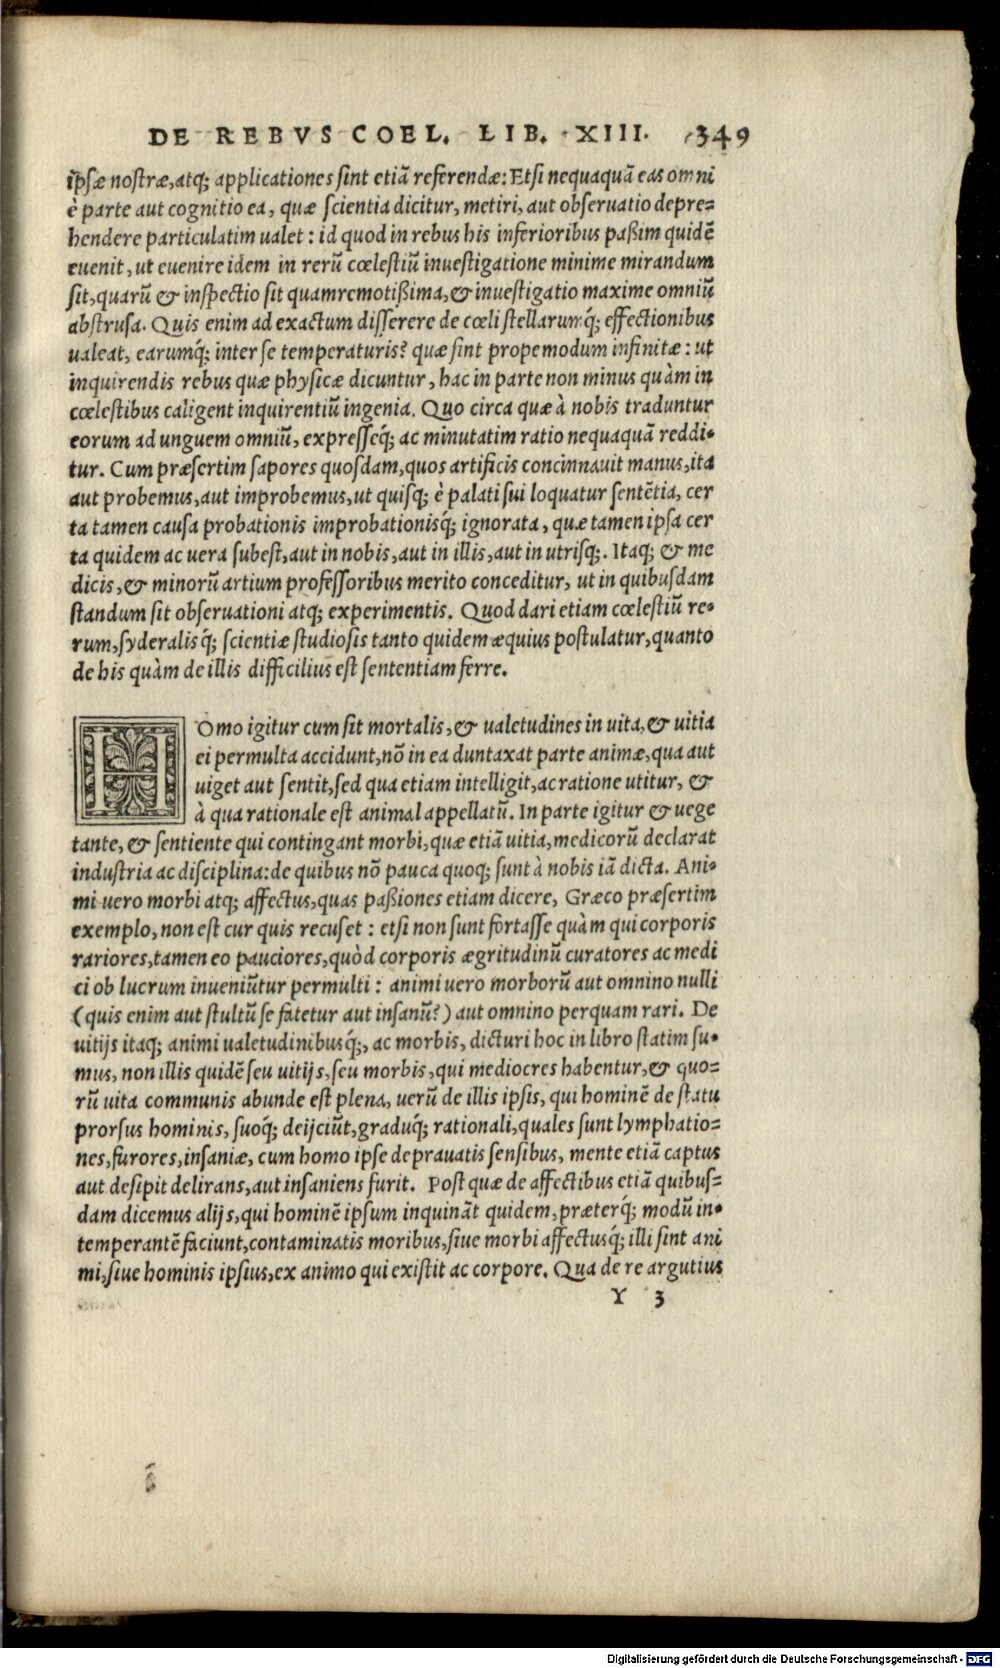 DE REBVS COEL. LIB. XIII. 349
ipsæ nostræ, atq; applicationes sint etiā referendæ: Etsi nequaquā eas omni
è parte aut cognitio ea, quæ scientia dicitur, metiri, aut obseruatio depre=
hendere particulatim ualet: id quod in rebus his inferioribus paßim quidē
euenit, ut euenire idem in rerū cœlestiū inuestigatione minime mirandum
sit, quarū & inspectio sit quamremotißima, & inuestigatio maxime omniū
abstrusa. Quis enim ad exactum disserere de cœli stellarumq́; effectionibus
ualeat, earumq́; inter se temperaturis? quæ sint propemodum infinitæ: ut
inquirendis rebus quæ physicæ dicuntur, hac in parte non minus quàm in
cœlestibus caligent inquirentiū ingenia. Quo circa quæ à nobis traduntur
eorum ad unguem omniū, expresseq́; ac minutatim ratio nequaquā reddi-
tur. Cum præsertim sapores quosdam, quos artificis concinnauit manus, ita
aut probemus, aut improbemus, ut quisq; è palati sui loquatur sentētia, cer
ta tamen causa probationis improbationisq́; ignorata, quæ tamen ipsa cer
ta quidem ac uera subest, aut in nobis, aut in illis, aut in utrisq;. Itaq; & me
dicis, & minorū artium professoribus merito conceditur, ut in quibusdam
standum sit obseruationi atq; experimentis. Quod dari etiam cœlestiū re-
rum, syderalisq́; scientiæ studiosis tanto quidem æquius postulatur, quanto
de his quàm de illis difficilius est sententiam ferre.
HOmo igitur cum sit mortalis, & ualetudines in uita, & uitia
ei permulta accidunt, nō in ea duntaxat parte animæ, qua aut
uiget aut sentit, sed qua etiam intelligit, ac ratione utitur, &
à qua rationale est animal appellatū. In parte igitur & uege
tante, & sentiente qui contingant morbi, quæ etiā uitia, medicorū declarat
industria ac disciplina: de quibus nō pauca quoq; sunt à nobis iā dicta. Ani-
mi uero morbi atq; affectus, quas paßiones etiam dicere, Græco præsertim
exemplo, non est cur quis recuset: etsi non sunt fortasse quàm qui corporis
rariores, tamen eo pauciores, quòd corporis ægritudinū curatores ac medi
ci ob lucrum inueniūtur permulti: animi uero morborū aut omnino nulli
(quis enim aut stultū se fatetur aut insanū?) aut omnino perquam rari. De
uitijs itaq; animi ualetudinibusq́;, ac morbis, dicturi hoc in libro statim su-
mus, non illis quidē seu uitijs, seu morbis, qui mediocres habentur, & quo=
rū uita communis abunde est plena, uerū de illis ipsis, qui hominē de statu
prorsus hominis, suoq́; deijciūt, graduq́; rationali, quales sunt lymphatio=
nes, furores, insaniæ, cum homo ipse deprauatis sensibus, mente etiā captus
aut desipit delirans, aut insaniens furit. Post quæ de affectibus etiā quibus=
dam dicemus alijs, qui hominē ipsum inquināt quidem, præterq́; modū in-
temperantē faciunt, contaminatis moribus, siue morbi affectusq́; illi sint ani
mi, siue hominis ipsius, ex animo qui existit ac corpore. Qua de re argutius
Y 3
Digitalisierung gefördert durch die Deutsche Forschungsgemeinschaft - DFG